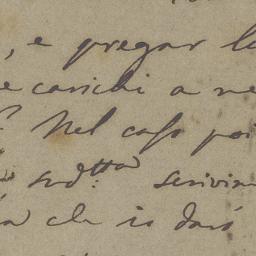 , e pregar lo
e carichi a ne
? Nel caso poi
sud.tta scrivia
a che io darò